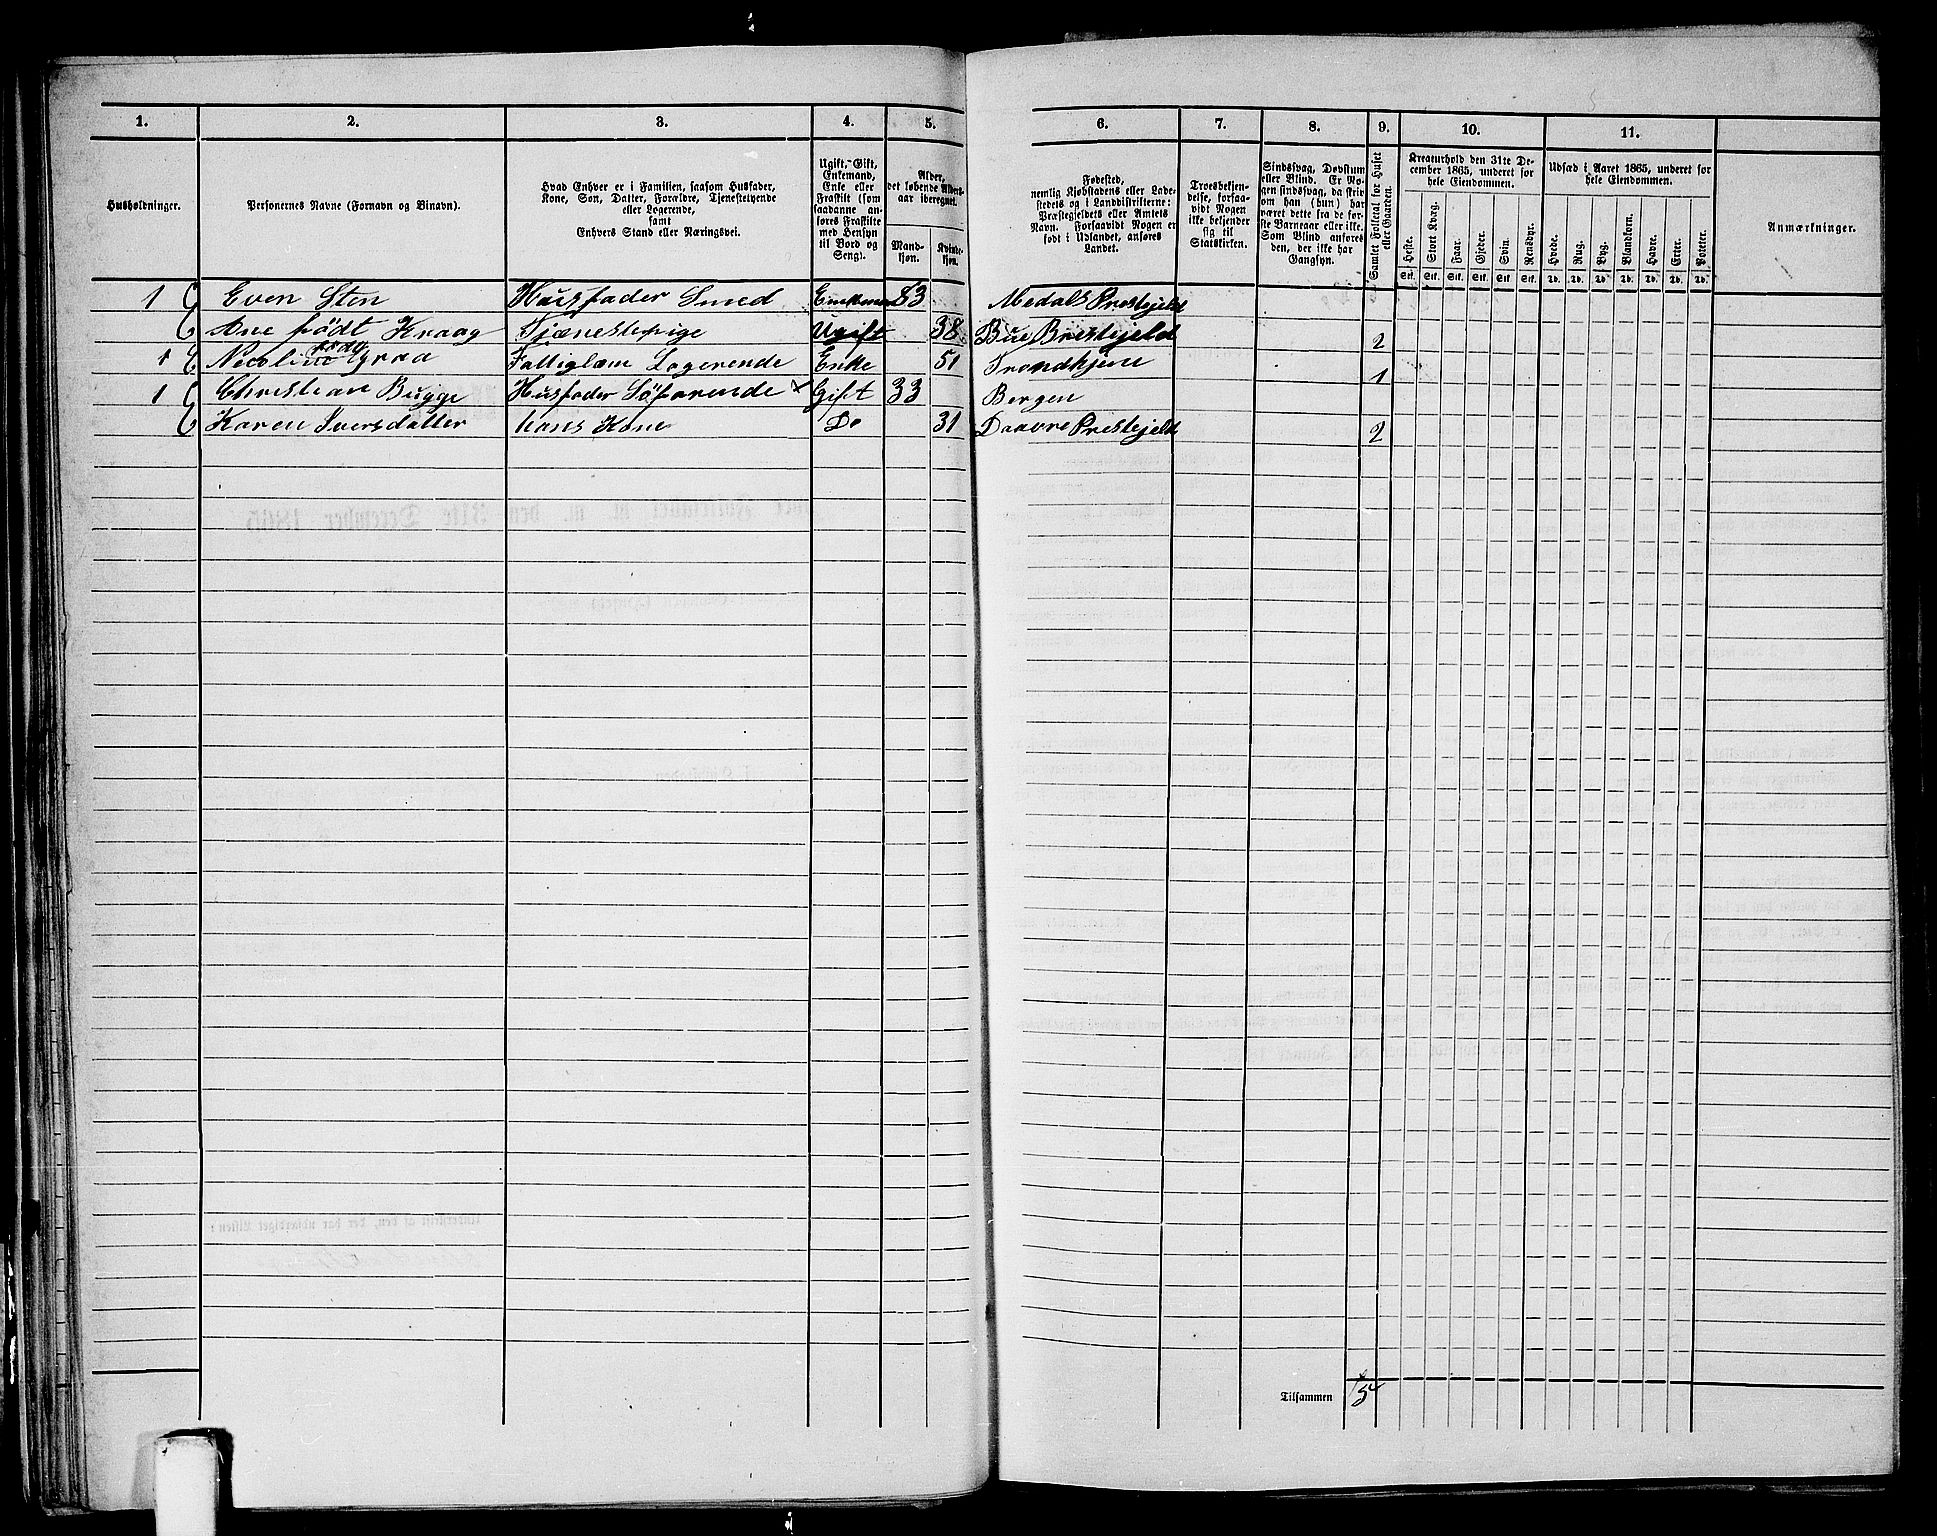 1. 2. 3. 4. 5. 6. 7. 8. 9. 10. 11.
Husholdninger.
Personernes Navne (Fornavn og Binavn).
Hvad Enhver er i Familien, saasom Husfader,
Kone, Søn, Datter, Forældre, Tjenestetyende
eller Logerende,
samt
Enhvers Stand eller Næringsvei.
Ugift, Gift,
Enkemand,
Enke eller
Fraskilt (som
saadanne an-
føres Fraskilte
med Hensyn
til Bord og
Seng).
Alder,
det løbende Alders-
aar iberegnet.
Mand-
kjøn.
Kvinde-
kjøn.
Fødested,
nemlig Kjøbstadens eller Lade-
stedets og i Landdistrikterne:
Præstegjeldets eller Amtets
Navn. Forsaavidt Nogen er
født i Udlandet, anføres
Landet.
Troesbekjen-
delse, forsaa-
vidt Nogen
ikke bekjender
sig til
Statskirken.
Sindssvag, Døvstum
eller Blind. Er No-
gen sindssvag, da skriv
om han (hun) har
været dette fra de før-
ste Barneaar eller ikke.
Som Blind anføres
den, der ikke har
Gangsyn.
Samlet Folketal for Huset
eller Gaarden.
Kreaturhold den 31te De-
cember 1865, underet for
hele Eiendommen.
Heste. Stort Kvæg. Faar. Gjeder. Svin. Rensdyr.
Stk. Stk. Stk. Stk. Stk. Stk.
Udsæd i Aaret 1865, underet for
hele Eiendommen.
Hvede. Rug. Byg. Blandkorn. Havre. Erter. Poteter.
Td. Td. Td. Td. Td. Td. Td.
Anmærkninger.
1 Even Sten Huusfader Smed Enkemand 83 Medals Prestejeld
Ane født Kraag Tjænestepige Ugift 38 Bue Prestejeld 2
1 Nicoline født Graa Fattiglam Logerende Enke 51 Trondhjem 1
1 Christian Bugge Husfader Söfarende + Gift 33 Bergen
Karen Iversdatter hans Kone Do 31 Daavre Prestejeld 2
Tilsammen 5